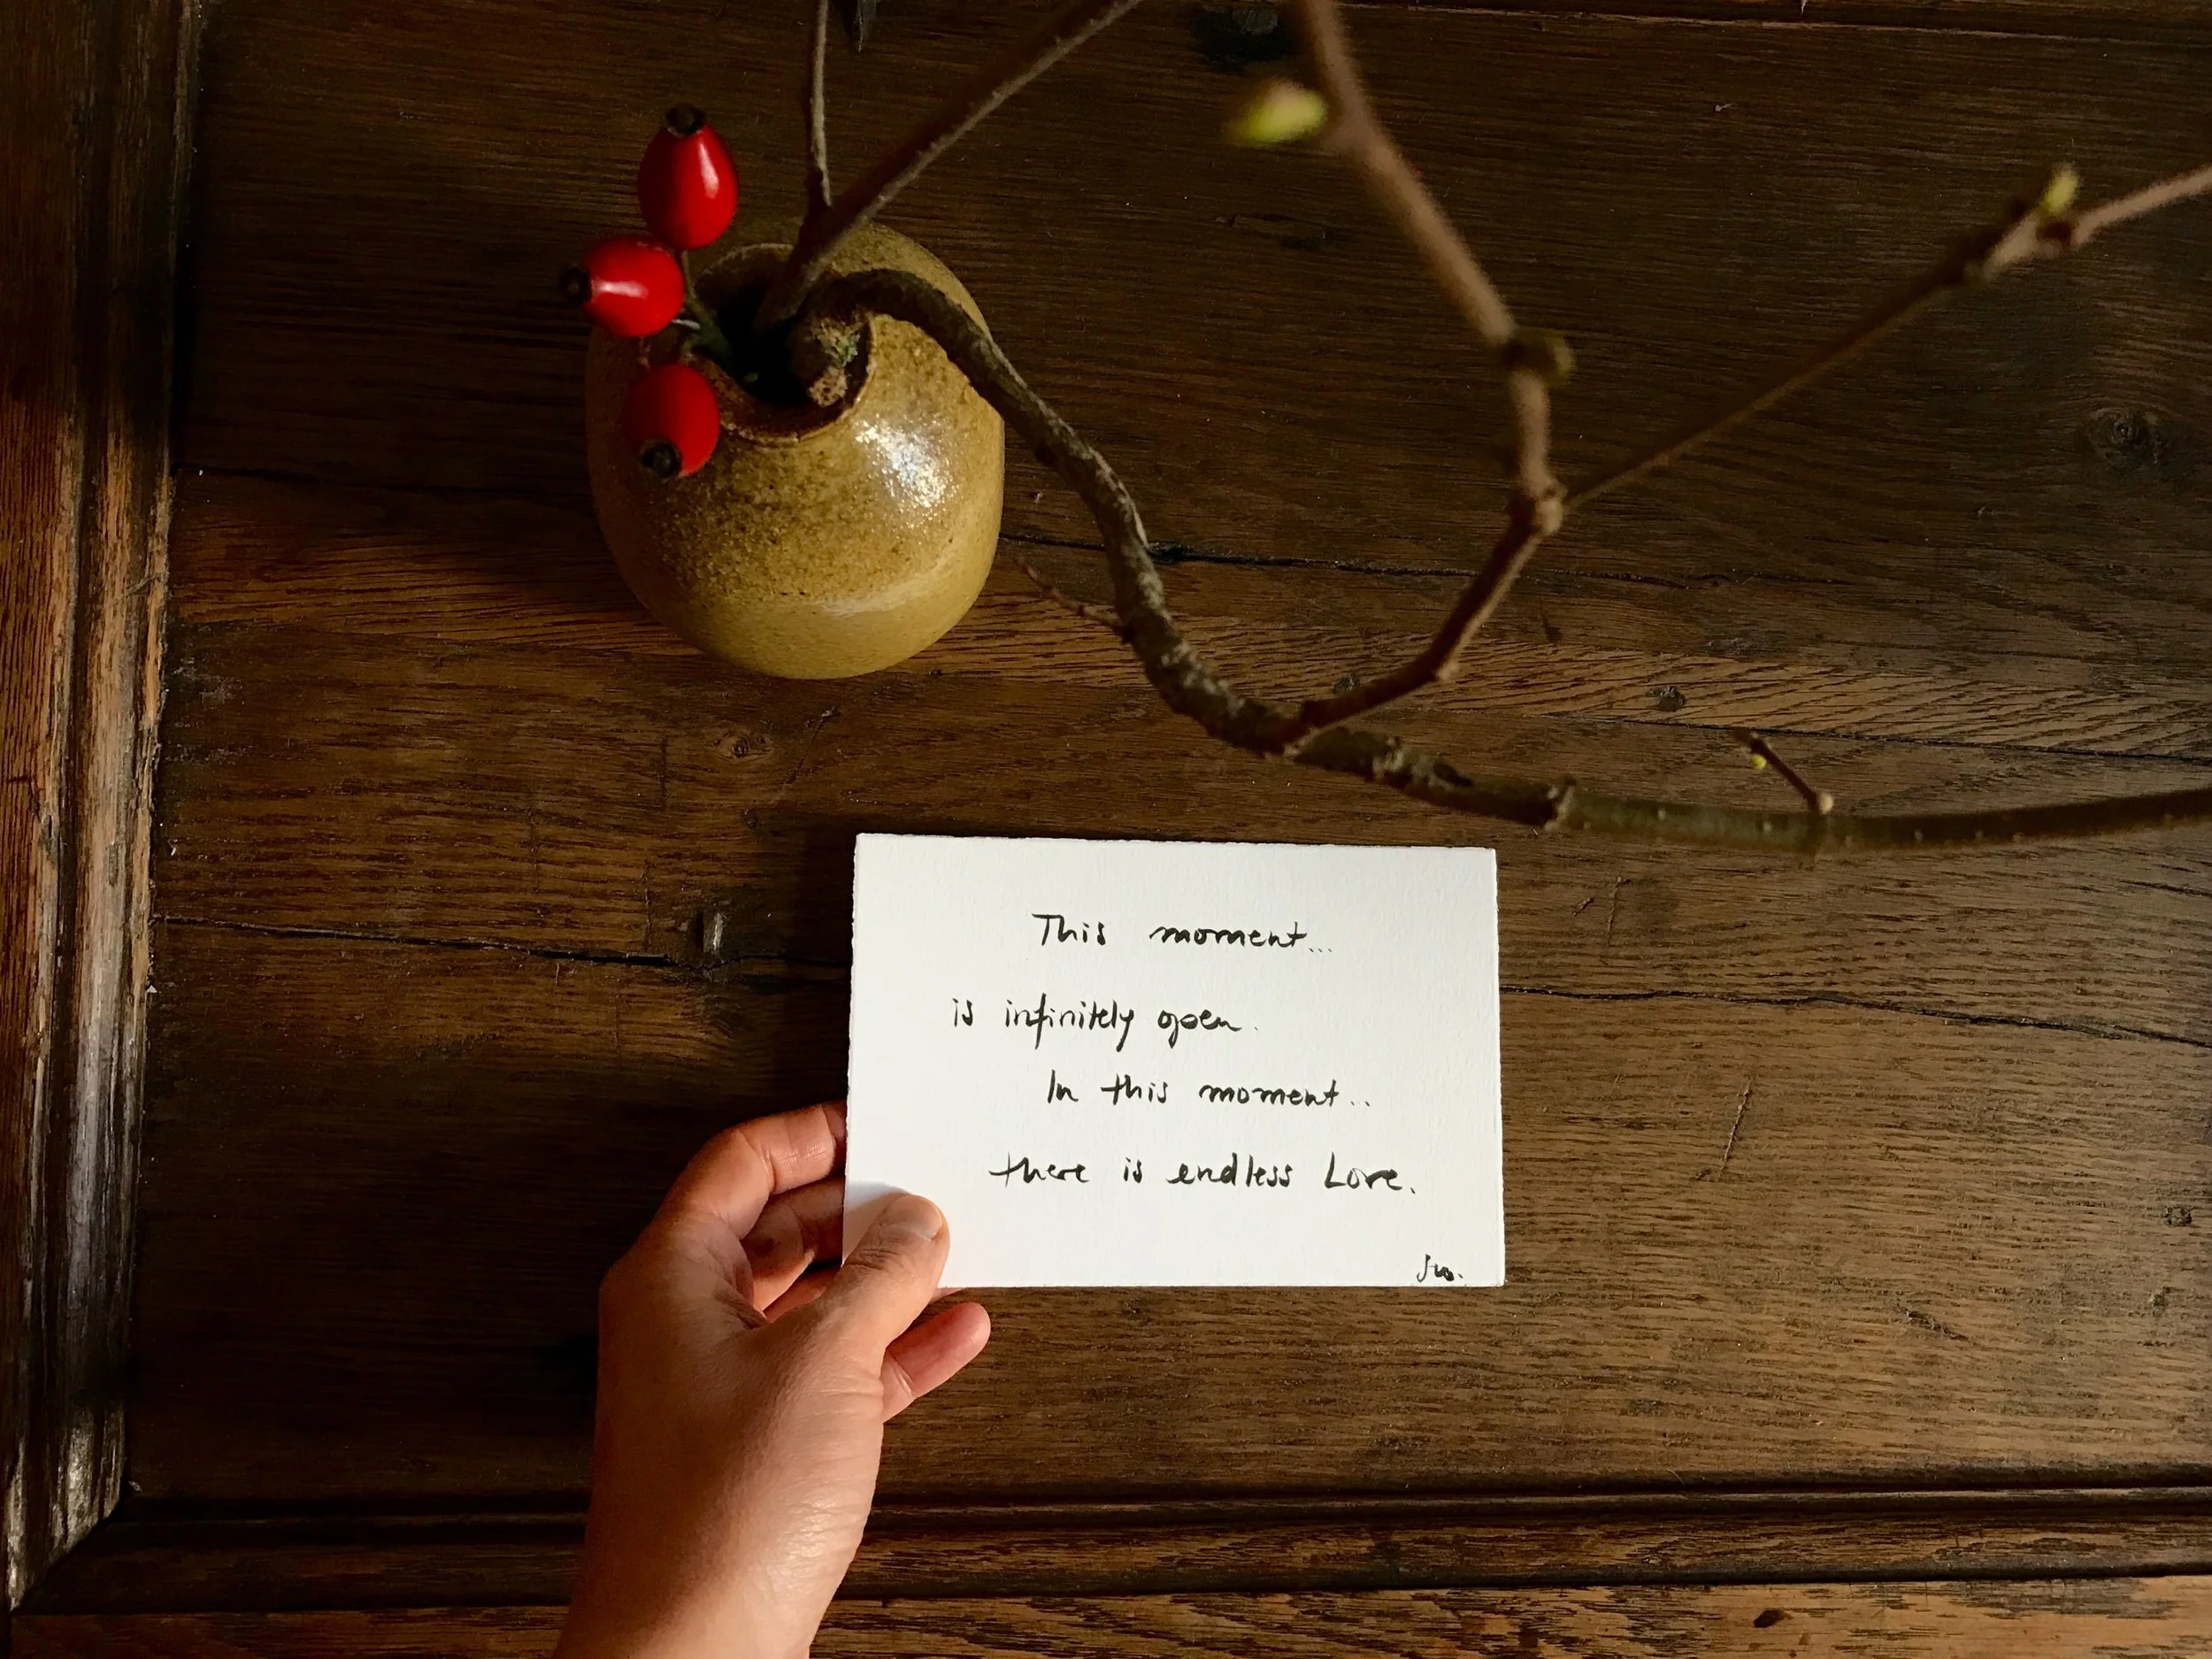 This moment...
is infinitely open.
In this moment..
there is endless Love.